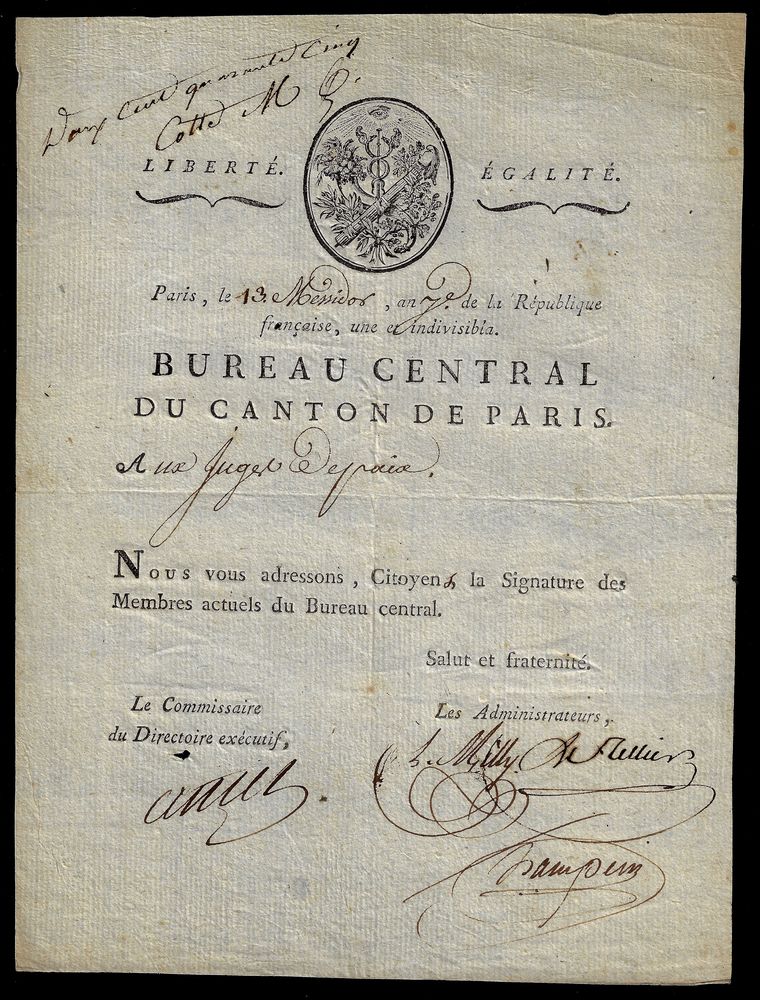 Deux cent quarante cinq
Cotte M
LIBERTÉ.
ÉGALITÉ.
Paris, le 13 Messidor, an 7e. de la République
française, une et indivisibla.
BUREAU CENTRAL
DU CANTON DE PARIS.
Aux Juges De paix.
Nous vous adressons, Citoyens la Signature des
Membres actuels du Bureau central.
Salut et fraternité.
Le Commissaire
du Directoire exécutif,
Les Administrateurs,
L. Milly